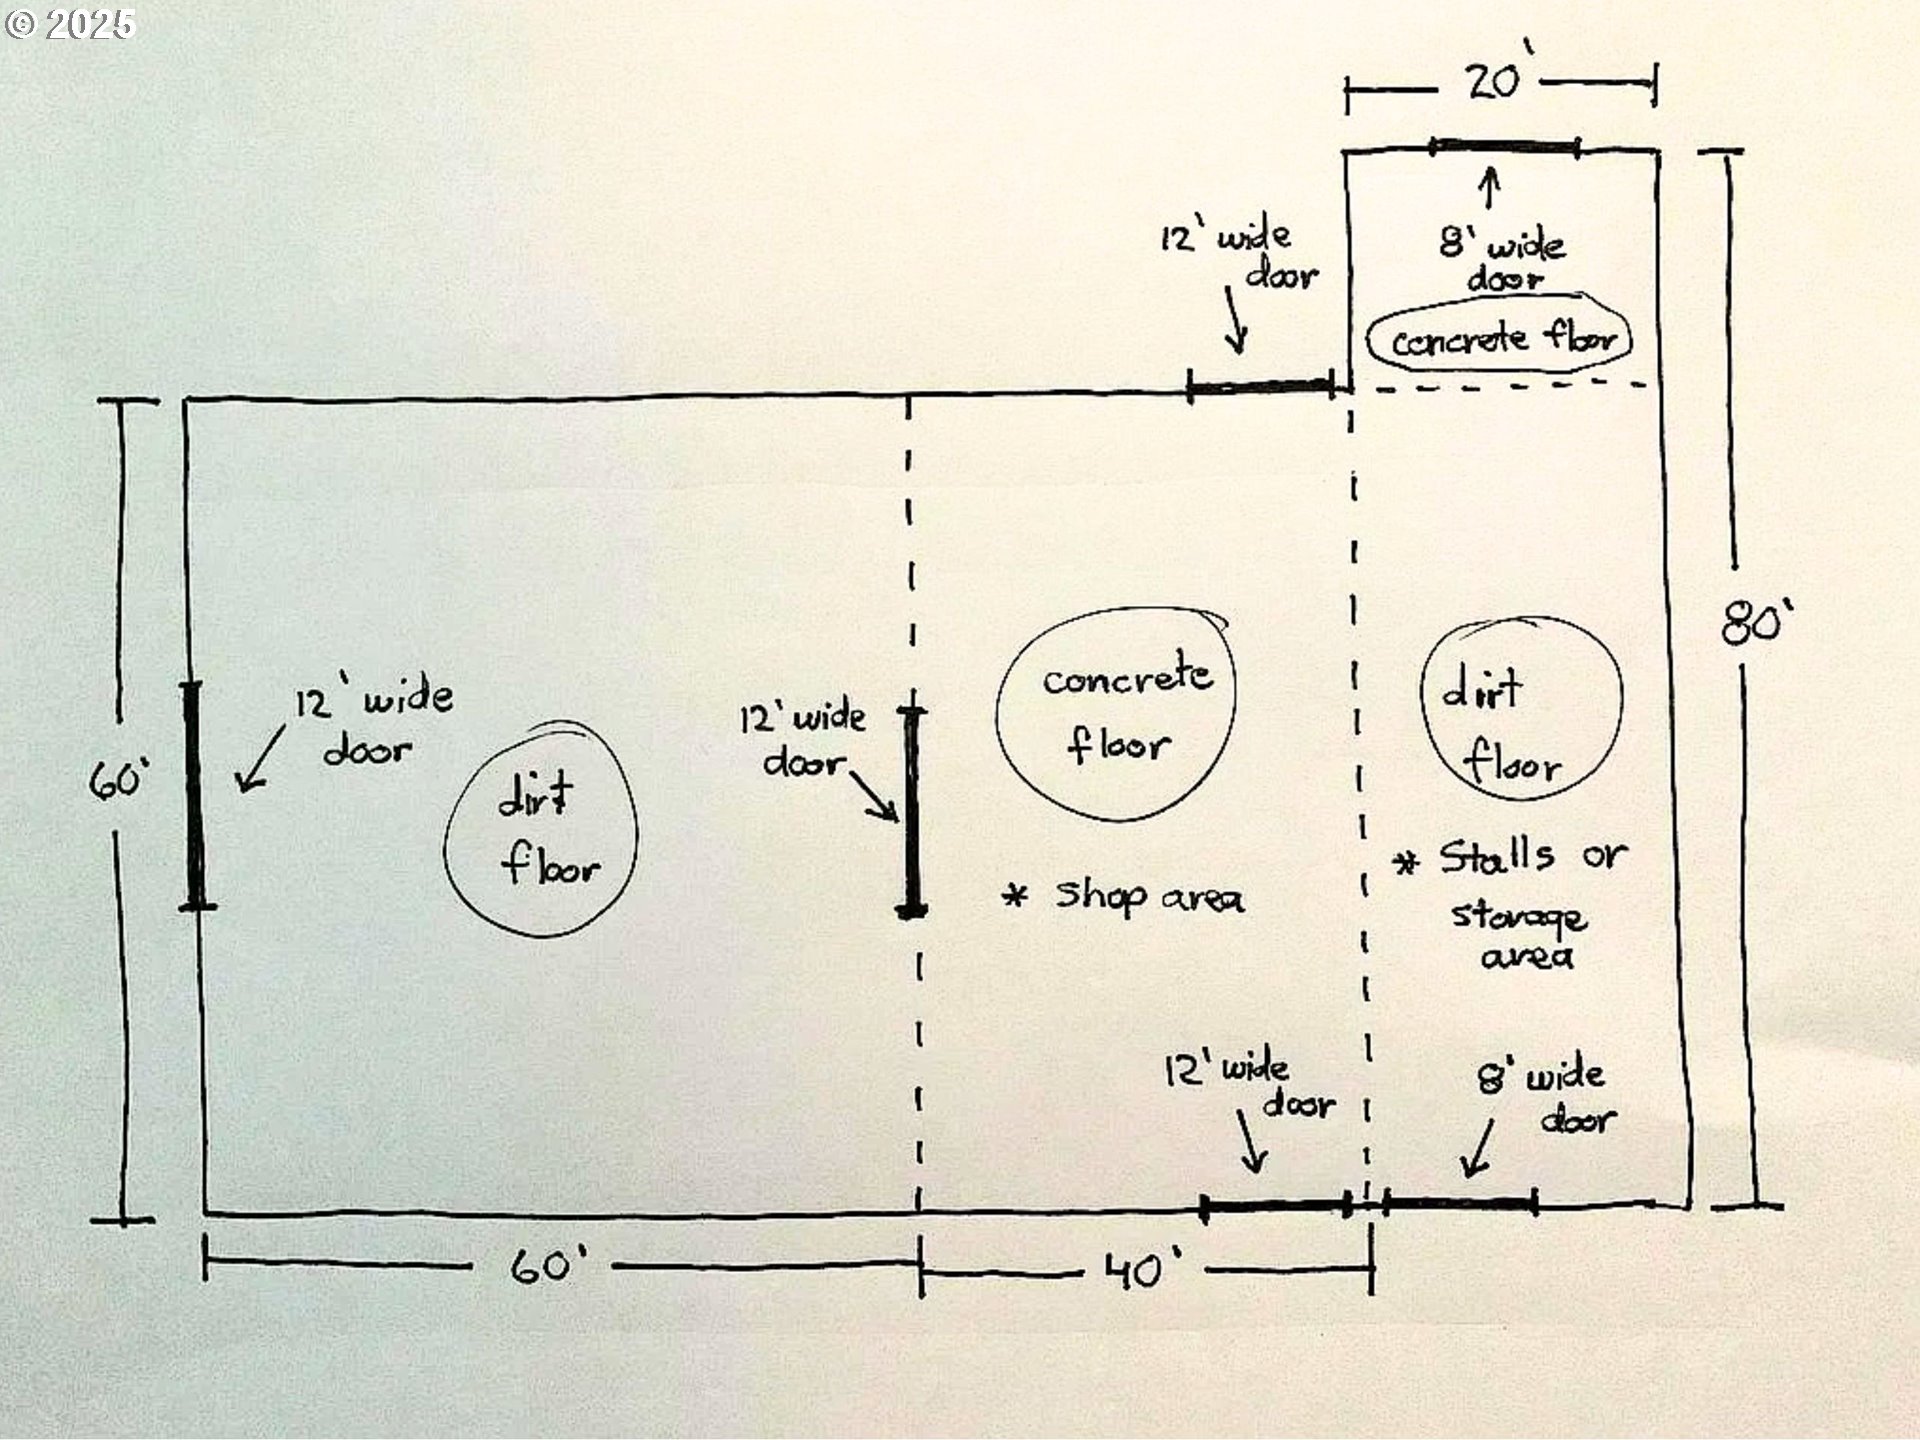 © 2025
20'
12' wide
door
8' wide
door
concrete floor
60'
12' wide
door
dirt
floor
12' wide
door
concrete
floor
* shop area
dirt
floor
* Stalls or
storage
area
80'
12' wide
door
8' wide
door
60'
40'